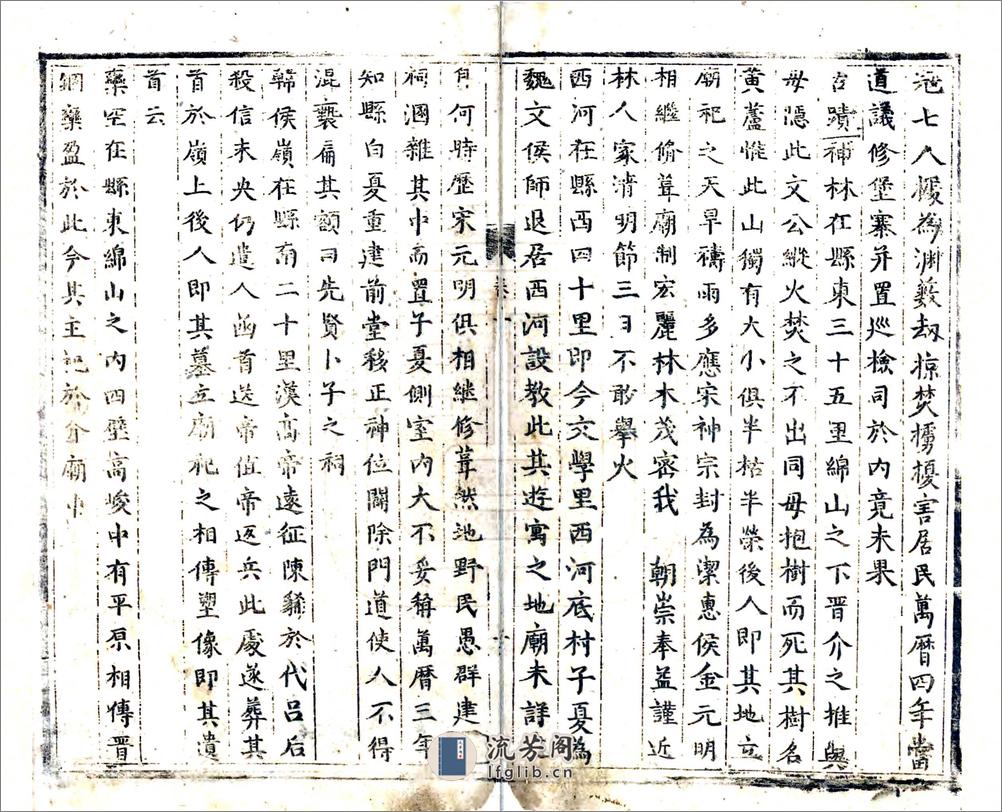 卷七八攫為渊藪刼掠焚擄擾害居民萬暦四年當
道議修堡寨并置巡檢司於内竟未果
古蹟神林在縣東三十五里綿山之下晋介之推與
母隱此文公縱火焚之不出同母抱樹而死其樹名
黄蘆惟此山獨有大小俱半枯半榮後人即其地立
廟祀之天旱禱雨多應宋神宗封為潔惠侯金元明
相繼脩葺廟制宏麗林木茂密我 朝崇奉益謹近
林人家清明節三日不敢擧火
西河在縣西四十里即今文學里西河底村子夏為
魏文侯師退居西河設教此其遊寓之地廟未詳
何時歴宋元明俱相継修葺然地野民愚群建
祠溷雜其中而置子夏側室内大不妥稱萬暦三年
知縣白夏重建前堂移正神位闢除門道使人不得
混褻扁其額曰先賢卜子之祠
韓侯嶺在縣南二十里漢高帝遠征陳豨於代吕后
殺信未央仍遣人函首送帝值帝返兵此處遂葬其
首於嶺上後人即其墓立廟祀之相傳塑像即其遺
首云
欒空在縣東綿山之内四壁高峻中有平原相傳晋
錮欒盈於此今其主祀於介廟中
卷一
流芳阁
lfglib.cn